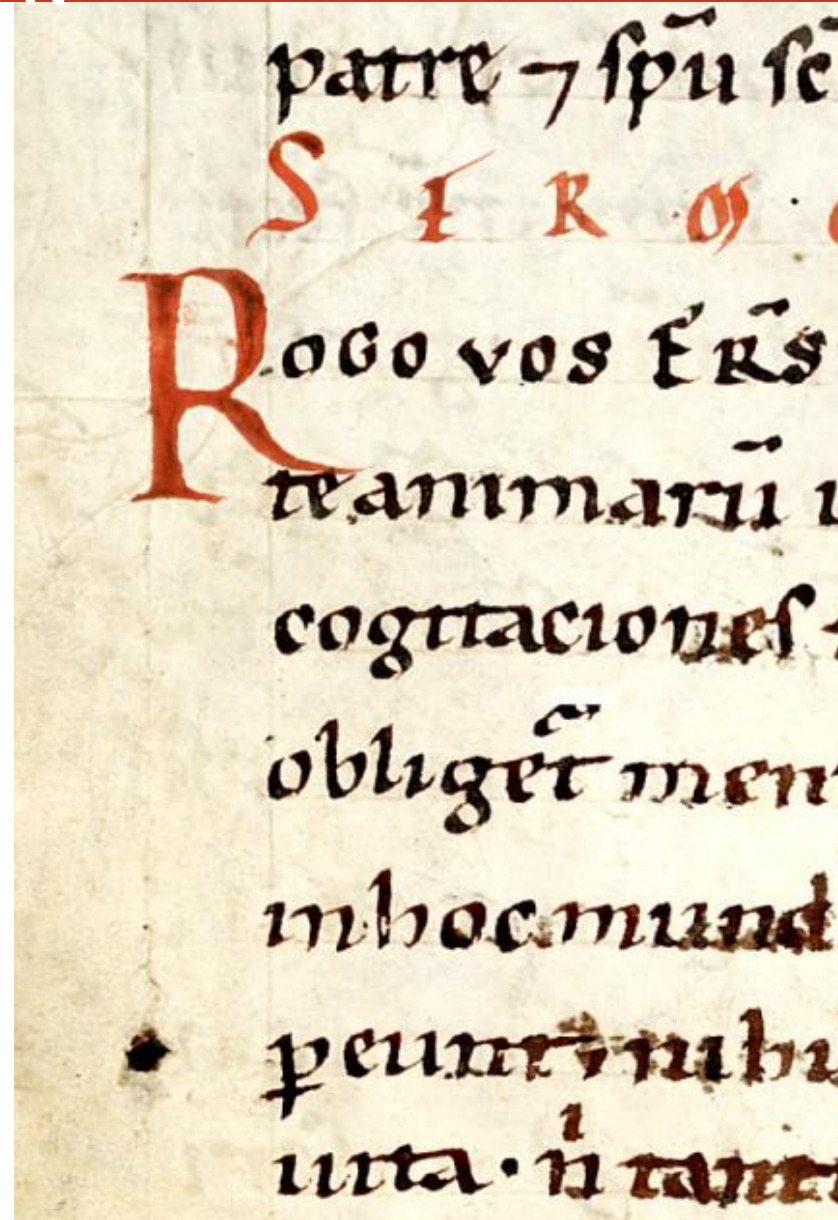 patre ⁊ spū sc̄
S E R M ·
Rogo vos fr̄s
te animarū
cogitaciones
obliget̄ men
in hoc mund
ꝑeunt; nihi
uita · n̄ tant